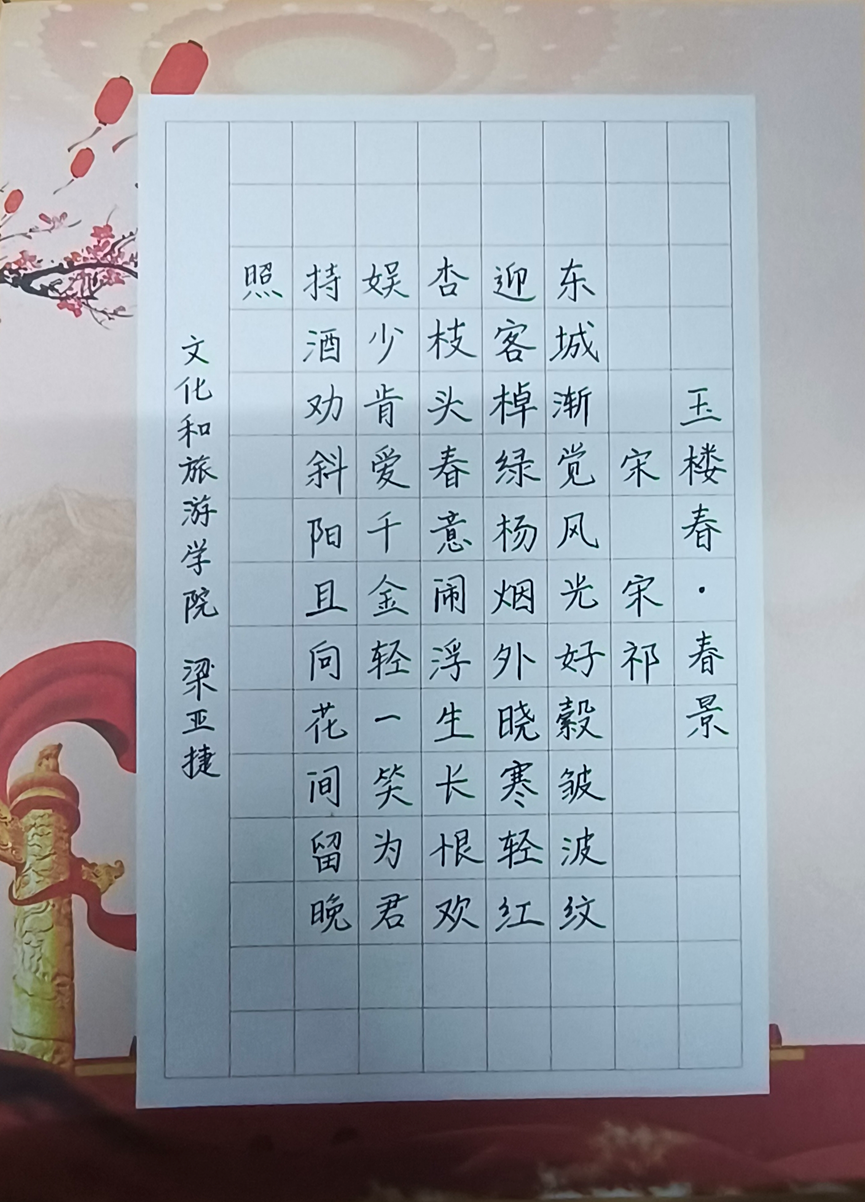 玉楼春·春景
宋 宋祁
东城渐觉风光好縠皱波纹
迎客棹绿杨烟外晓寒轻红
杏枝头春意闹浮生长恨欢
娱少肯爱千金轻一笑为君
持酒劝斜阳且向花间留晚
照
文化和旅游学院 梁亚捷